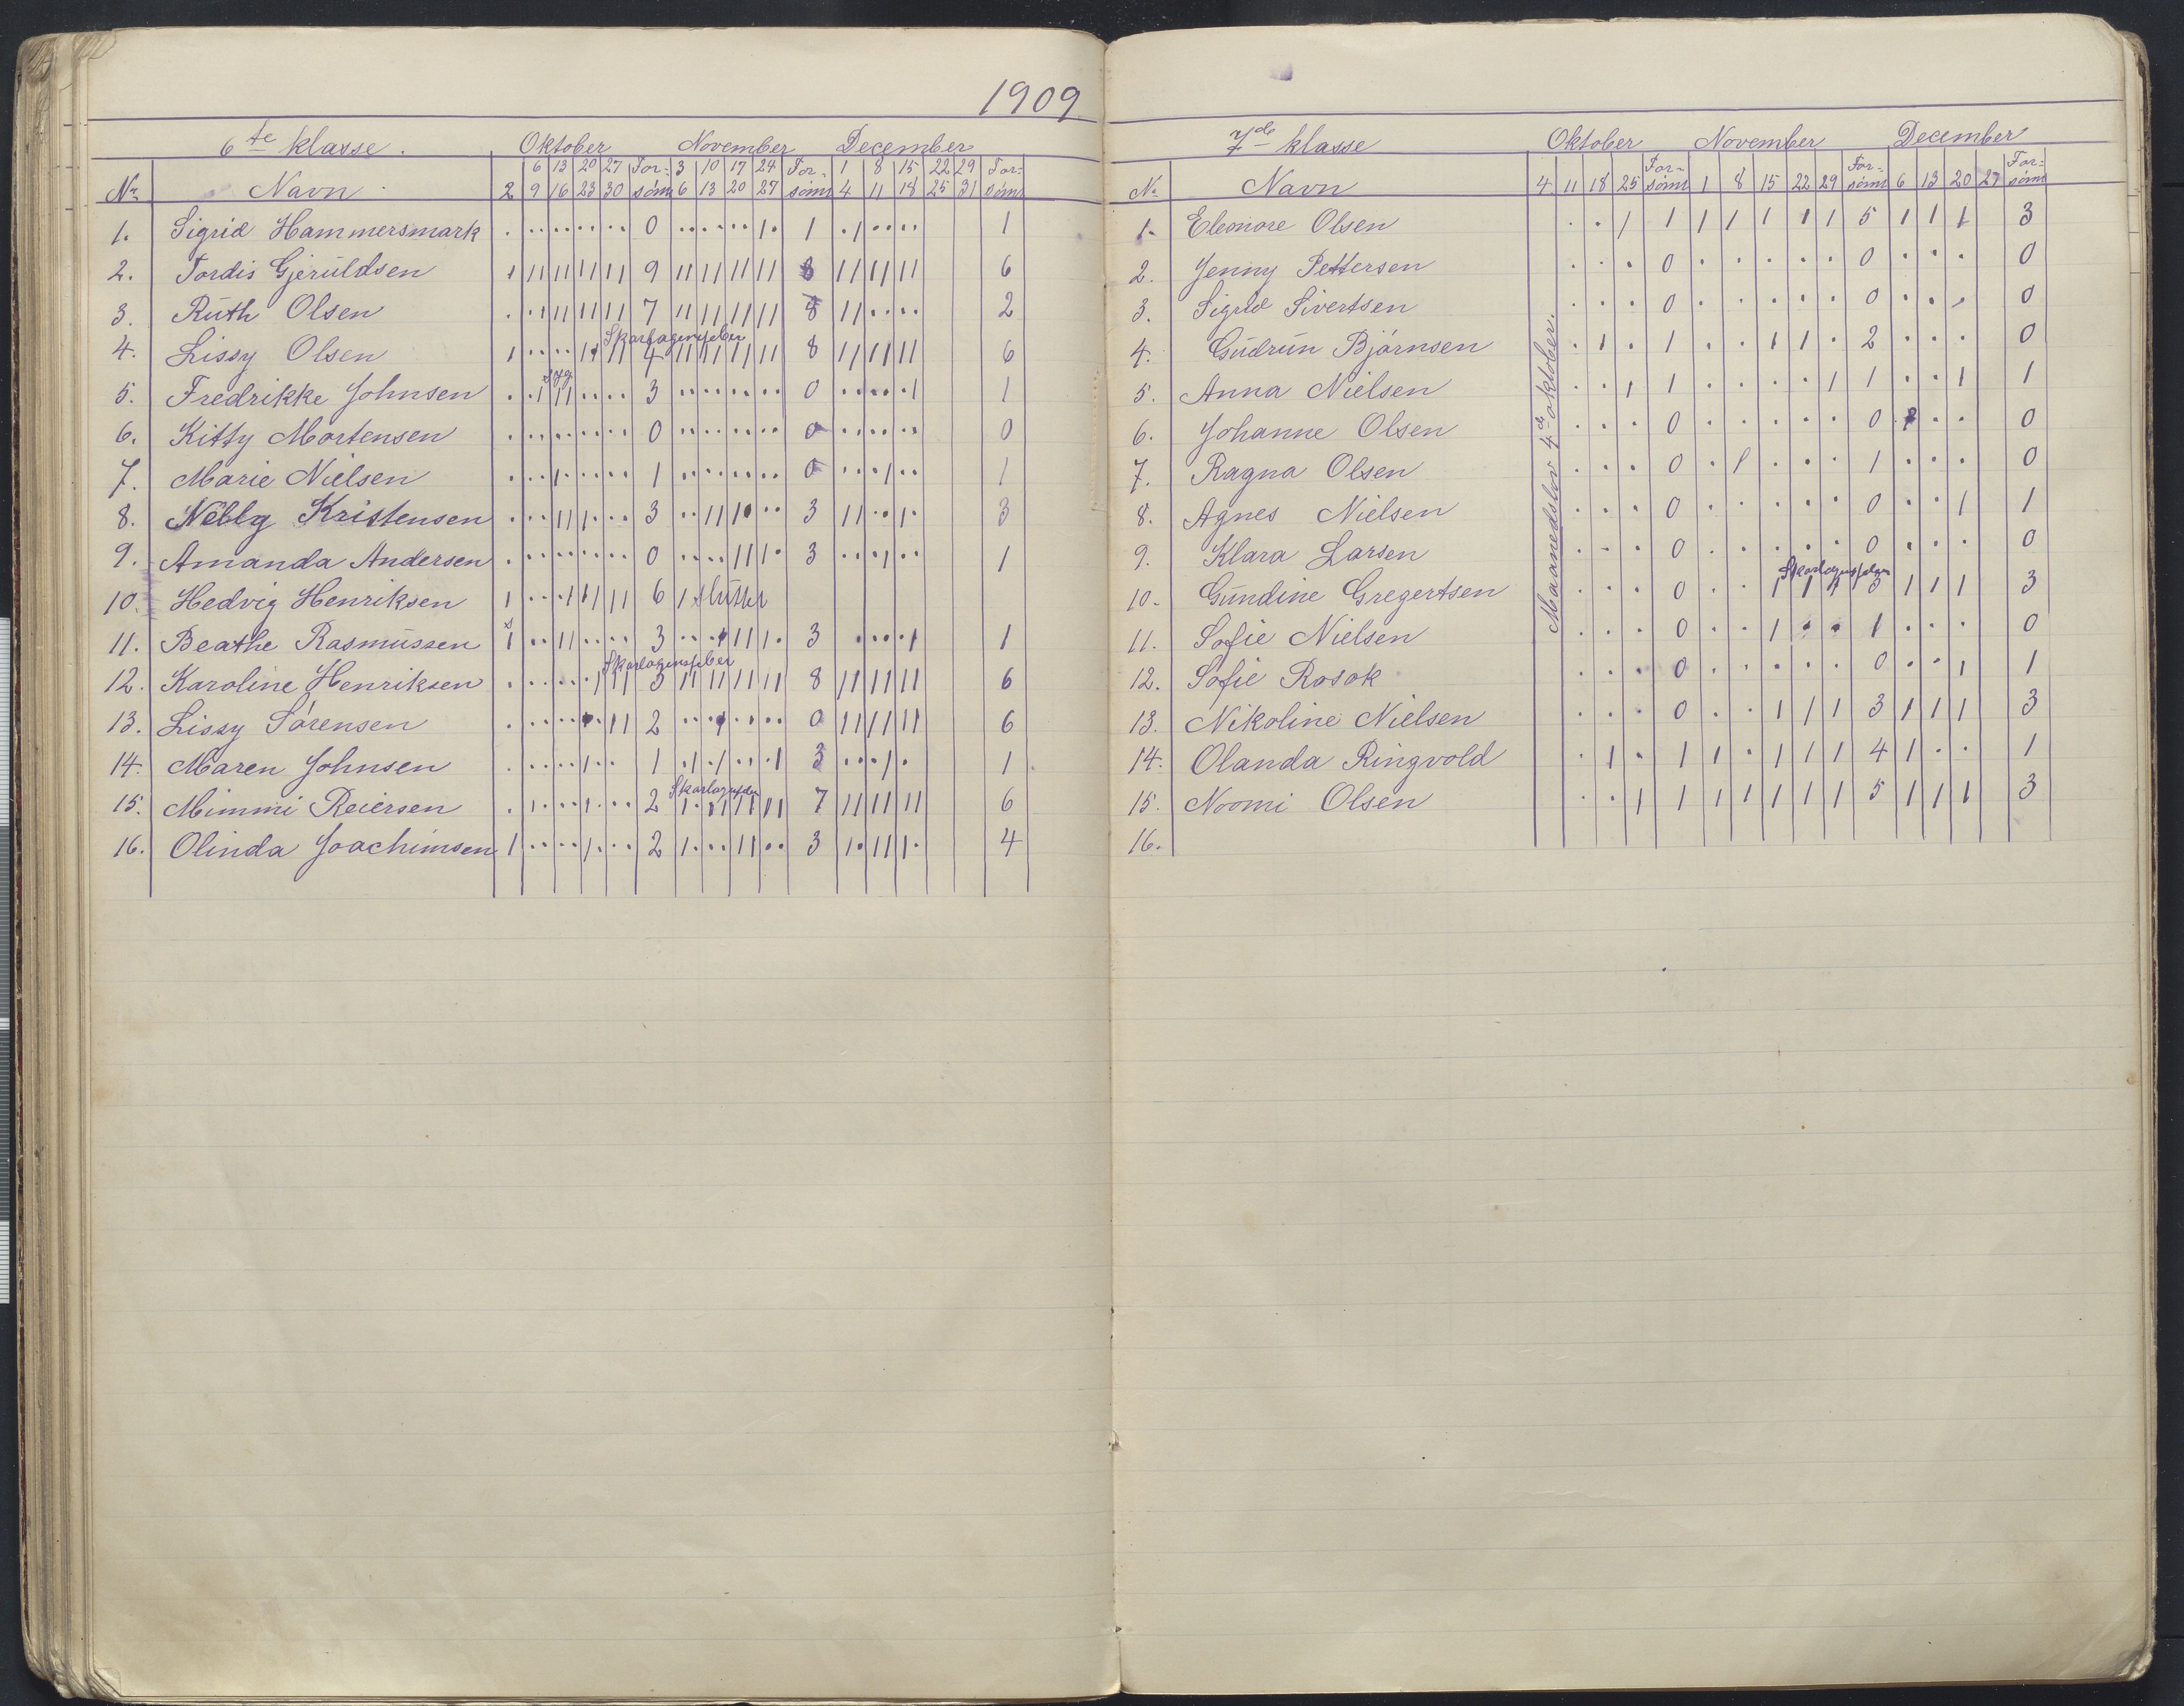 1909
6te klasse. Oktober November December
6 13 20 27 For- 3 10 17 24 For- 1 8 15 22 29 For-
No Navn. 2 9 16 23 30 sömt 6 13 20 27 sömt 4 11 18 25 31 sömt
1. Sigrid Hammersmark 0 1 1
2. Tordis Gjeruldsen 9 8 6
3. Ruth Olsen 7 8 2
Skarlagensfeber
4. Lissy Olsen 4 8 6
syg
5. Fredrikke Johnsen 3 0 1
6. Kitty Mortensen 0 0 0
7. Marie Nielsen 1 0 1
8. Nelly Kristensen 3 3 3
9. Amanda Andersen 0 3 1
10. Hedvig Henriksen 6 sluttet
11. Beathe Rasmussen 3 3 1
Skarlagensfeber
12. Karoline Henriksen 3 8 6
13. Lissy Sörensen 2 0 6
14. Maren Johnsen 1 3 1
15. Mimmi Reiersen 2 7 6
16. Olinda Joachimsen 2 3 4
7de klasse Oktober November December
No Navn 4 11 18 25 For-sömt 1 8 15 22 29 For-sömt 6 13 20 27 For-sömt
Maanedslov 4de oktober.
1. Eleonore Olsen 1 5 3
2. Jenny Pettersen 0 0 0
3. Sigrid Sivertsen 0 0 0
4. Gudrun Björnsen 1 2 0
5. Anna Nielsen 1 1 1
6. Johanne Olsen 0 0 0
7. Ragna Olsen 0 1 0
8. Agnes Nielsen 0 0 1
9. Klara Larsen 0 0 0
10. Gundine Gregertsen 0 3 3
11. Sofie Nielsen 0 1 0
12. Sofie Rosok 0 0 1
13. Nikoline Nielsen 0 3 3
14. Olanda Ringvold 1 4 1
15. Noomi Olsen 1 5 3
16.